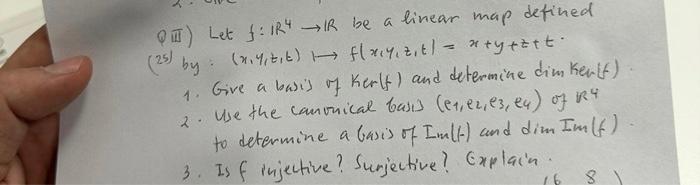 Q III) Let f: ℝ⁴ → ℝ be a linear map defined
(25) by: (x,y,z,t) ↦ f(x,y,z,t) = x+y+z+t.
1. Give a basis of Ker(f) and determine dim Ker(f).
2. Use the canonical basis (e1, e2, e3, e4) of ℝ⁴
to determine a basis of Im(f) and dim Im(f).
3. Is f injective? Surjective? Explain.